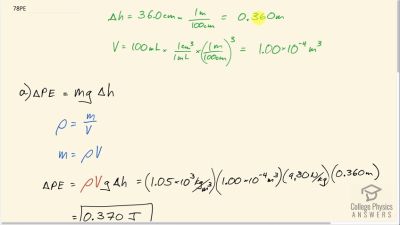 78PE
Δh = 36.0cm × 1m/100cm = 0.360m
V = 100mL × 1cm³/1mL × (1m/100cm)³ = 1.00×10⁻⁴ m³
a) ΔPE = mgΔh
ρ = m/V
m = ρV
ΔPE = ρVgΔh = (1.05×10³ kg/m³)(1.00×10⁻⁴m³)(9.80N/kg)(0.360m)
= 0.370 J
College Physics
ANSWERS